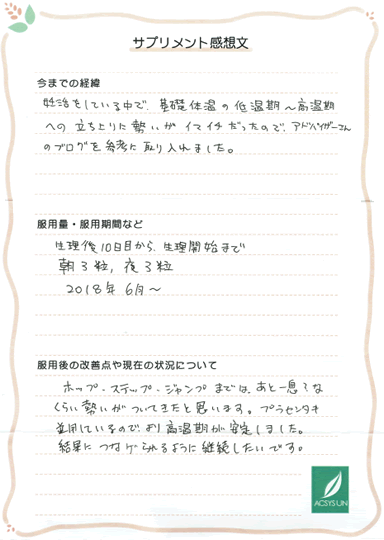 サプリメント感想文
今までの経緯
妊活をしている中で、基礎体温の低温期～高温期
への立ち上りに勢いがイマイチだったので、アドバイザーさん
のブログを参考に取り入れました。
服用量・服用期間など
生理後10日目から、生理開始まで
朝3粒，夜3粒
2018年 6月～
服用後の改善点や現在の状況について
ホップ・ステップ・ジャンプまでは、あと一息てな
くらい勢いがついてきたと思います。プラセンタも
並用しているのでより高温期が安定しました。
結果につなげられるように継続したいです。
ACSYSUN